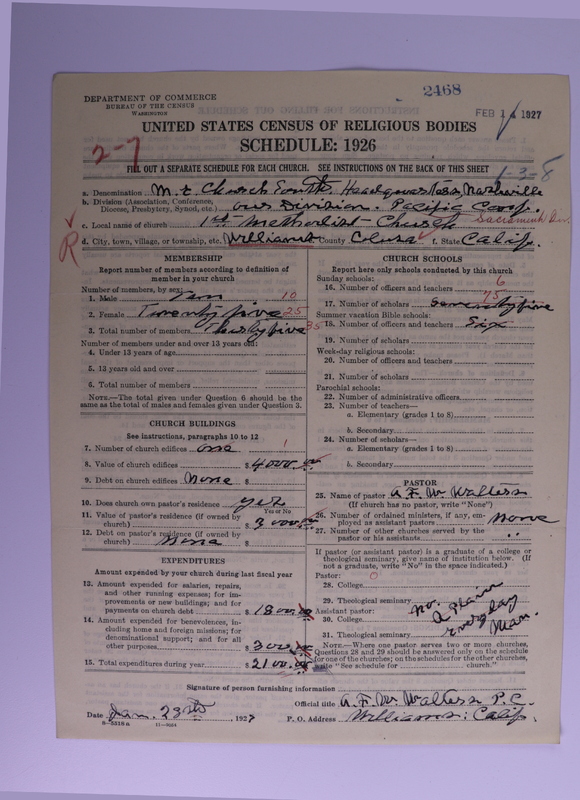 2468
DEPARTMENT OF COMMERCE
BUREAU OF THE CENSUS
WASHINGTON
FEB 14 1927
UNITED STATES CENSUS OF RELIGIOUS BODIES
SCHEDULE: 1926
2-7
FILL OUT A SEPARATE SCHEDULE FOR EACH CHURCH. SEE INSTRUCTIONS ON THE BACK OF THIS SHEET
1-3-8
a. Denomination M.E. Church South. Headquarters, Nashville
b. Division (Association, Conference, Diocese, Presbytery, Synod, etc.) our Division. Pacific
Sacramento Div.
c. Local name of church 1st Methodist Church
R
d. City, town, village, or township, etc. Williams County Colusa f. State Calif.
MEMBERSHIP
Report number of members according to definition of member in your church
Number of members, by sex:
1. Male Ten 10
2. Female Twenty five 25
3. Total number of members Thirty five 35
Number of members under and over 13 years old:
4. Under 13 years of age
5. 13 years old and over
6. Total number of members
NOTE.—The total given under Question 6 should be the same as the total of males and females given under Question 3.
CHURCH BUILDINGS
See instructions, paragraphs 10 to 12
7. Number of church edifices one 1
8. Value of church edifices $ 4000.00
9. Debt on church edifices None $
10. Does church own pastor's residence yes
Yes or No
11. Value of pastor's residence (if owned by church) $ 3000.00
12. Debt on pastor's residence (if owned by church) None $
EXPENDITURES
Amount expended by your church during last fiscal year
13. Amount expended for salaries, repairs, and other running expenses; for improvements or new buildings; and for payments on church debt $ 1800.00
14. Amount expended for benevolences, including home and foreign missions; for denominational support; and for all other purposes $ 300.00
15. Total expenditures during year $ 2100.00
CHURCH SCHOOLS
Report here only schools conducted by this church
Sunday schools:
16. Number of officers and teachers 6
17. Number of scholars 75 Seventy five
Summer vacation Bible schools:
18. Number of officers and teachers Six
19. Number of scholars
Week-day religious schools:
20. Number of officers and teachers
21. Number of scholars
Parochial schools:
22. Number of administrative officers
23. Number of teachers—
a. Elementary (grades 1 to 8)
b. Secondary
24. Number of scholars—
a. Elementary (grades 1 to 8)
b. Secondary
PASTOR
25. Name of pastor A. F. W. Walters
(If church has no pastor, write "None")
26. Number of ordained ministers, if any, employed as assistant pastors None
27. Number of other churches served by the pastor or his assistants "
If pastor (or assistant pastor) is a graduate of a college or theological seminary, give name of institution below. (If not a graduate, write "No" in the space indicated.)
Pastor: 0
28. College
29. Theological seminary
Assistant pastor:
30. College
31. Theological seminary
no. a Plain everyday Man.
NOTE.—Where one pastor serves two or more churches, Questions 28 and 29 should be answered only on the schedule for one of the churches; on the schedules for the other churches, write "See schedule for church."
Signature of person furnishing information
Official title A. F. W. Walters P.C.
Date Jan. 23rd, 1927
P. O. Address Williams: Calif.
8-5510a
11-9064